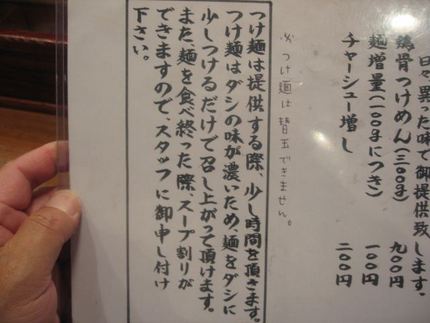 日々異った味で御提供致します。
鶏骨つけめん(三〇〇g) 九〇〇円
麺増量(一〇〇gにつき) 一〇〇円
チャーシュー増し 二〇〇円
※つけ麺は替玉できません。
つけ麺は提供する際、少し時間を頂きます。
つけ麺はダシの味が濃いため、麺をダシに
少しつけるだけで召し上がって頂けます。
また、麺を食べ終った際、スープ割りが
できますので、スタッフに御申し付け
下さい。